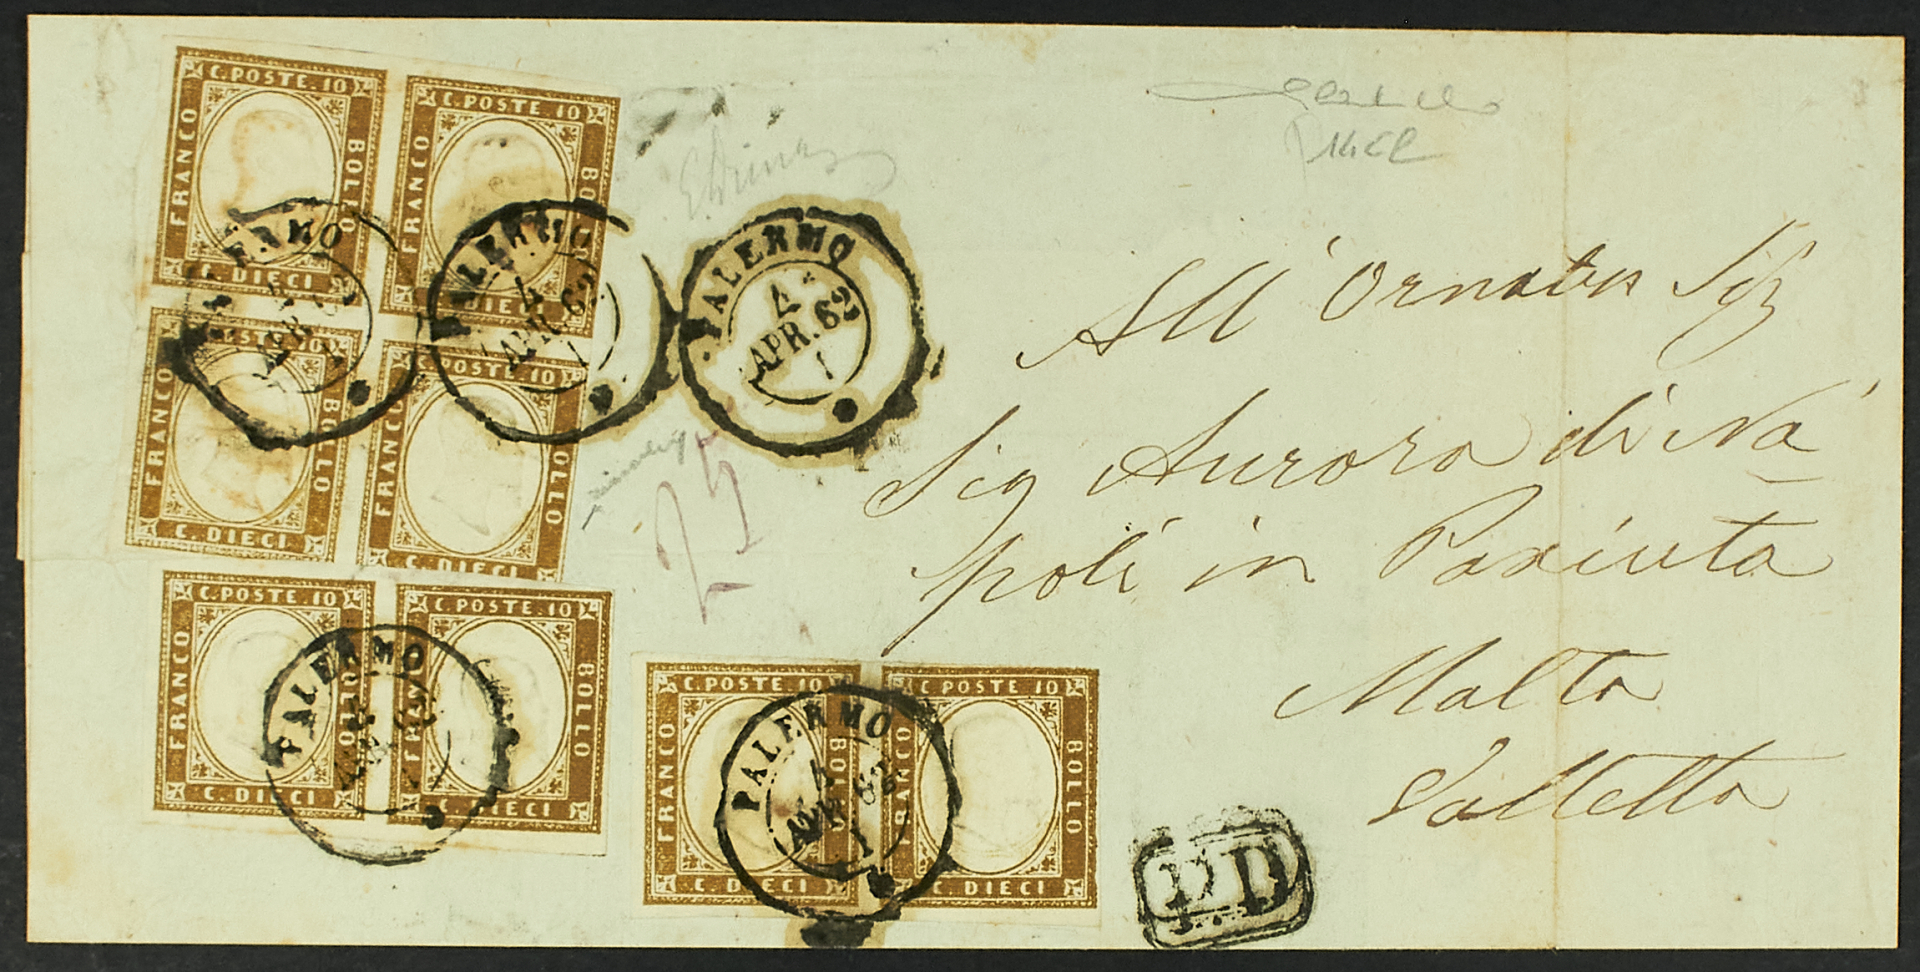 C. POSTE. 10
FRANCO
BOLLO
C. DIECI
C. POSTE. 10
FRANCO
BOLLO
DIECI
POSTE. 10
FRANCO
BOLLO
C. DIECI
C. POSTE. 10
FRANCO
BOLLO
C. DIECI
PALERMO
4
APR. 62
1
PALERMO
4
APR. 62
1
25
All' Ornatus Sig
Sig Aurora di Na
poli in Paxiuta
Malta
Valletta
C. POSTE. 10
FRANCO
BOLLO
C. DIECI
C. POSTE. 10
BOLLO
C. DIECI
PALERMO
C. POSTE. 10
FRANCO
BOLLO
C. DIECI
C. POSTE 10
FRANCO
BOLLO
C. DIECI
PALERMO
4
APR 62
1
P.D